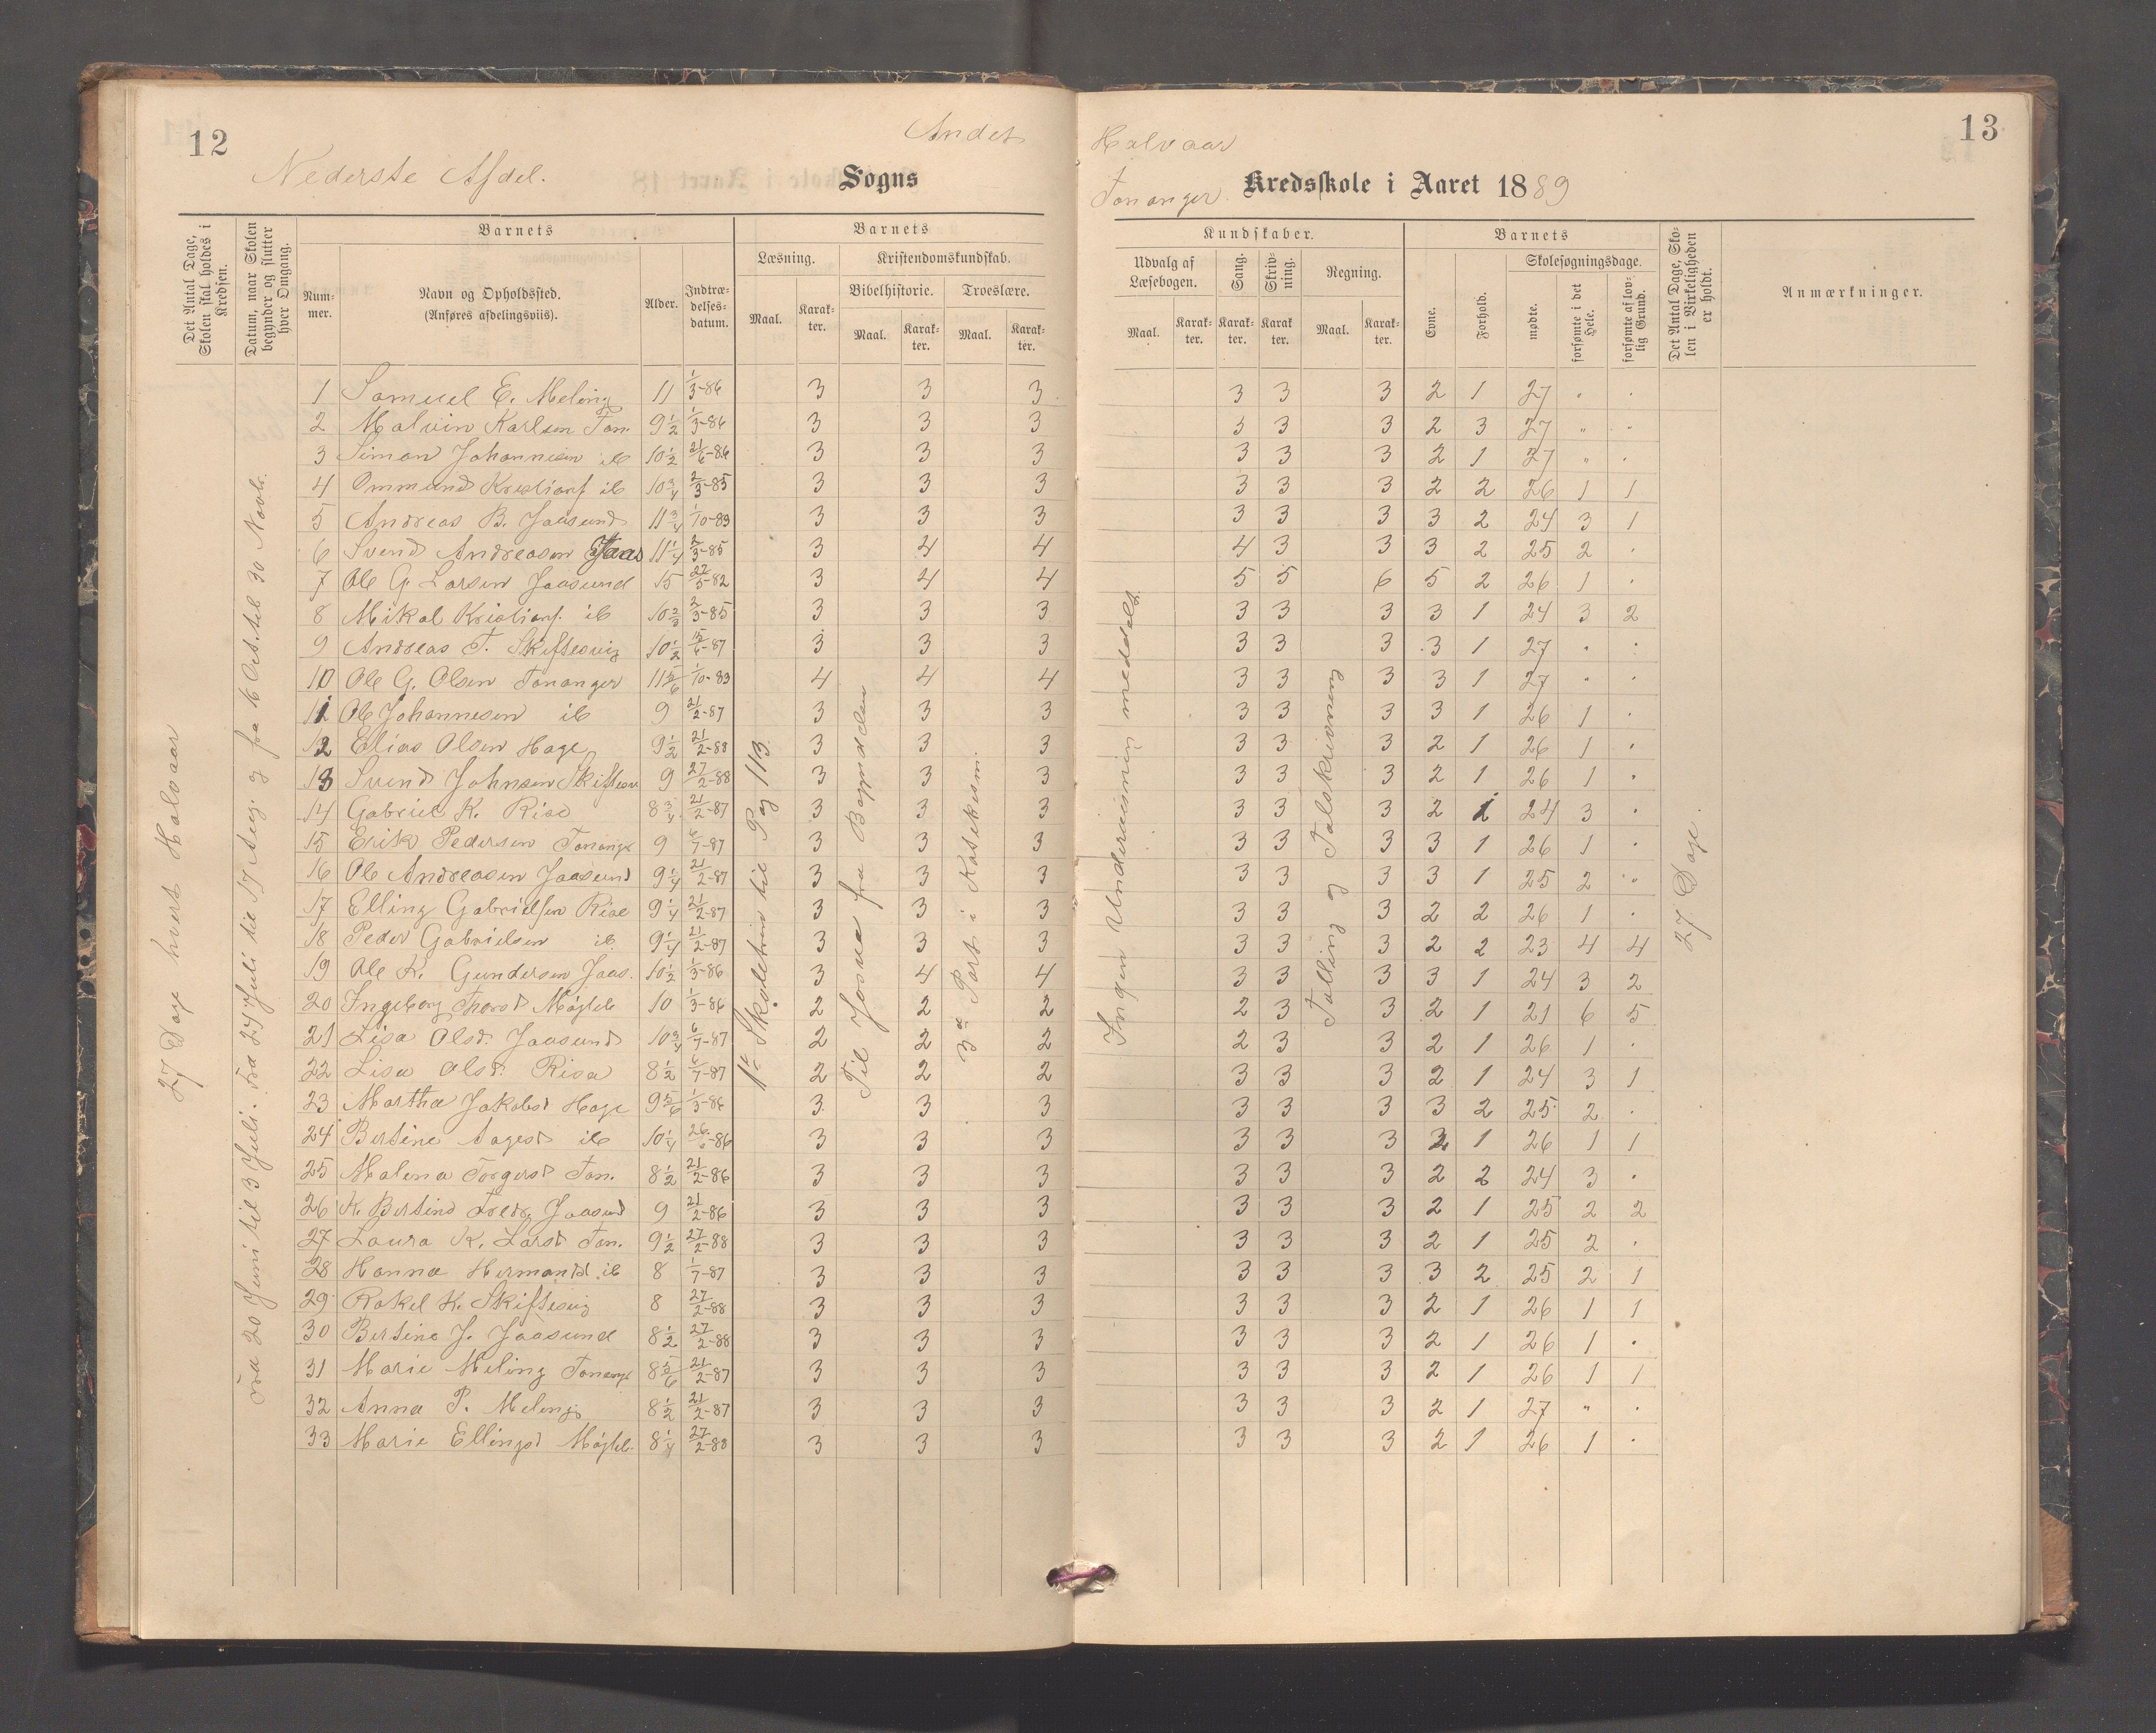 12
Andet
Nederste Afdel.
Sogns
Det Antal Dage, Skolen skal holdes i Kredsen.
Datum, naar Skolen begynder og slutter hver Omgang.
Barnets
Barnets
Læsning.
Kristendomskundskab.
Num-mer.
Navn og Opholdssted.
(Anføres afdelingsviis).
Alder.
Indtræ-delses-datum.
Bibelhistorie.
Troeslære.
Maal.
Karak-ter.
Maal.
Karak-ter.
Maal.
Karak-ter.
27 Dage hvert Halvaar
Fra 20 Juni til 3 Juli. Fra 24 Juli til 17 Aug. og fra 16 Oct. til 30 Novbr.
1ste Skoletrin til Pag 113
Til Josva fra Begyndelsen
3die Part i Katekism.
1 Samuel E. Meling 11 1/3-86 3 3 3
2 Malvin Karlsen Tan. 9 1/2 1/3-86 3 3 3
3 Simon Johannesen ib 10 1/2 21/6-86 3 3 3
4 Ommund Kristians. ib 10 3/4 2/3-85 3 3 3
5 Andreas B. Jaasund 11 3/4 1/10-83 3 3 3
6 Svend Andreasen Jaas 11 1/4 2/3-85 3 4 4
7 Ole G. Larsen Jaasund 15 27/5-82 3 4 4
8 Mikal Kristians. ib 10 2/3 2/3-85 3 3 3
9 Andreas T. Skiftesvig 10 1/2 15/6-87 3 3 3
10 Ole G. Olsen Tananger 11 5/6 1/10-83 4 4 4
11 Ole Johannesen ib 9 21/2-87 3 3 3
12 Elias Olsen Hage 9 1/2 21/2-88 3 3 3
13 Svend Johnsen Skiftesv 9 27/2-88 3 3 3
14 Gabriel K. Risa 8 3/4 21/2-87 3 3 3
15 Erik Pedersen Tanang. 9 6/7-87 3 3 3
16 Ole Andreasen Jaasund 9 1/4 21/2-87 3 3 3
17 Elling Gabrielsen Risa 9 1/4 21/2-87 3 3 3
18 Peder Gabrielsen ib. 9 1/4 21/2-87 3 3 3
19 Ole K. Gundersen Jaas. 10 1/2 1/3-86 3 4 4
20 Ingeborg Thorsd Møgleb 10 1/3-86 2 2 2
21 Lisa Olsd. Jaasund 10 3/4 6/7-87 2 2 2
22 Lisa Olsd. Risa 8 1/2 6/7-87 2 2 2
23 Martha Jakobsd Hage 9 5/6 1/3-86 3 3 3
24 Bertine Aagesd ib 10 1/4 3 3 3
25 Malena Torgersd Tan. 8 1/2 21/2-86 3 3 3
26 K. Bertine Fredr. Jaasund 9 21/2-86 3 3 3
27 Laura K. Larsd Tan. 9 1/2 27/2-88 3 3 3
28 Hanna Hermandsd. ib 8 1/7-87 3 3 3
29 Rakel K. Skiftesvig 8 27/2-88 3 3 3
30 Bertine J. Jaasund 8 1/2 27/2-88 3 3 3
31 Marie Meling Tanang. 8 5/6 21/2-87 3 3 3
32 Anna P. Meling 8 1/2 21/2-87 3 3 3
33 Marie Ellingsd Møgleb. 8 1/4 27/2-88 3 3 3
13
Halvaar
Tananger Kredsskole i Aaret 1889
Kundskaber.
Barnets
Det Antal Dage, Sko-len i Virkeligheden er holdt.
Anmærkninger.
Udvalg af Læsebogen.
Sang.
Skriv-ning.
Regning.
Evne.
Forhold.
Skolesøgningsdage.
Maal.
Karak-ter.
Karak-ter.
Karak-ter.
Maal.
Karak-ter.
mødte.
forsømte i det Hele.
forsømte af lov-lig Grund.
Ingen Undervisning meddelt.
Talling og Talskrivning
27 Dage.
3 3 3 2 1 27 " "
3 3 3 2 3 27 " "
3 3 3 2 1 27 " "
3 3 3 2 2 26 1 1
3 3 3 3 2 24 3 1
4 3 3 3 2 25 2 "
5 5 6 5 2 26 1 "
3 3 3 3 1 24 3 2
3 3 3 3 1 27 " "
3 3 3 3 1 27 " "
3 3 3 3 1 26 1 "
3 3 3 2 1 26 1 "
3 3 3 2 1 26 1 "
3 3 3 2 1 24 3 "
3 3 3 3 1 26 1 "
3 3 3 3 1 25 2 "
3 3 3 2 2 26 1 "
3 3 3 2 2 23 4 4
3 3 3 3 1 24 3 2
2 3 3 2 1 21 6 5
2 3 3 2 1 26 1 "
3 3 3 2 1 24 3 1
3 3 3 3 2 25 2 "
3 3 3 2 1 26 1 1
3 3 3 2 2 24 3 "
3 3 3 2 1 25 2 2
3 3 3 2 1 25 2 "
3 3 3 3 2 25 2 1
3 3 3 2 1 26 1 1
3 3 3 2 1 26 1 "
3 3 3 2 1 26 1 1
3 3 3 2 1 27 " "
3 3 3 2 1 26 1 "